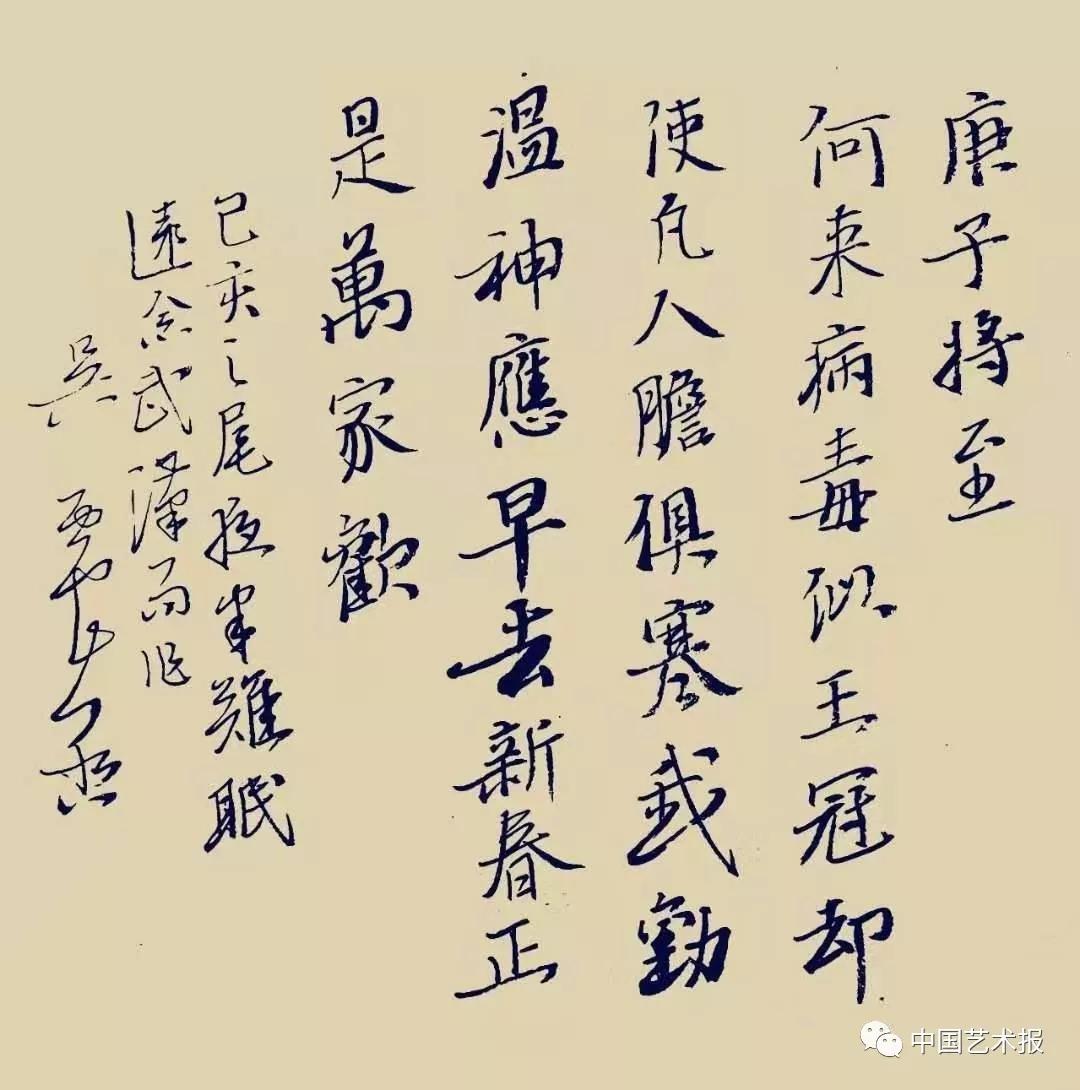 庚子将至
何来病毒似王冠却
使凡人膽俱寒我勸
温神應早去新春正
是萬家歡
己亥之尾夜半難眠
遠念武漢而作
吳
中国艺术报